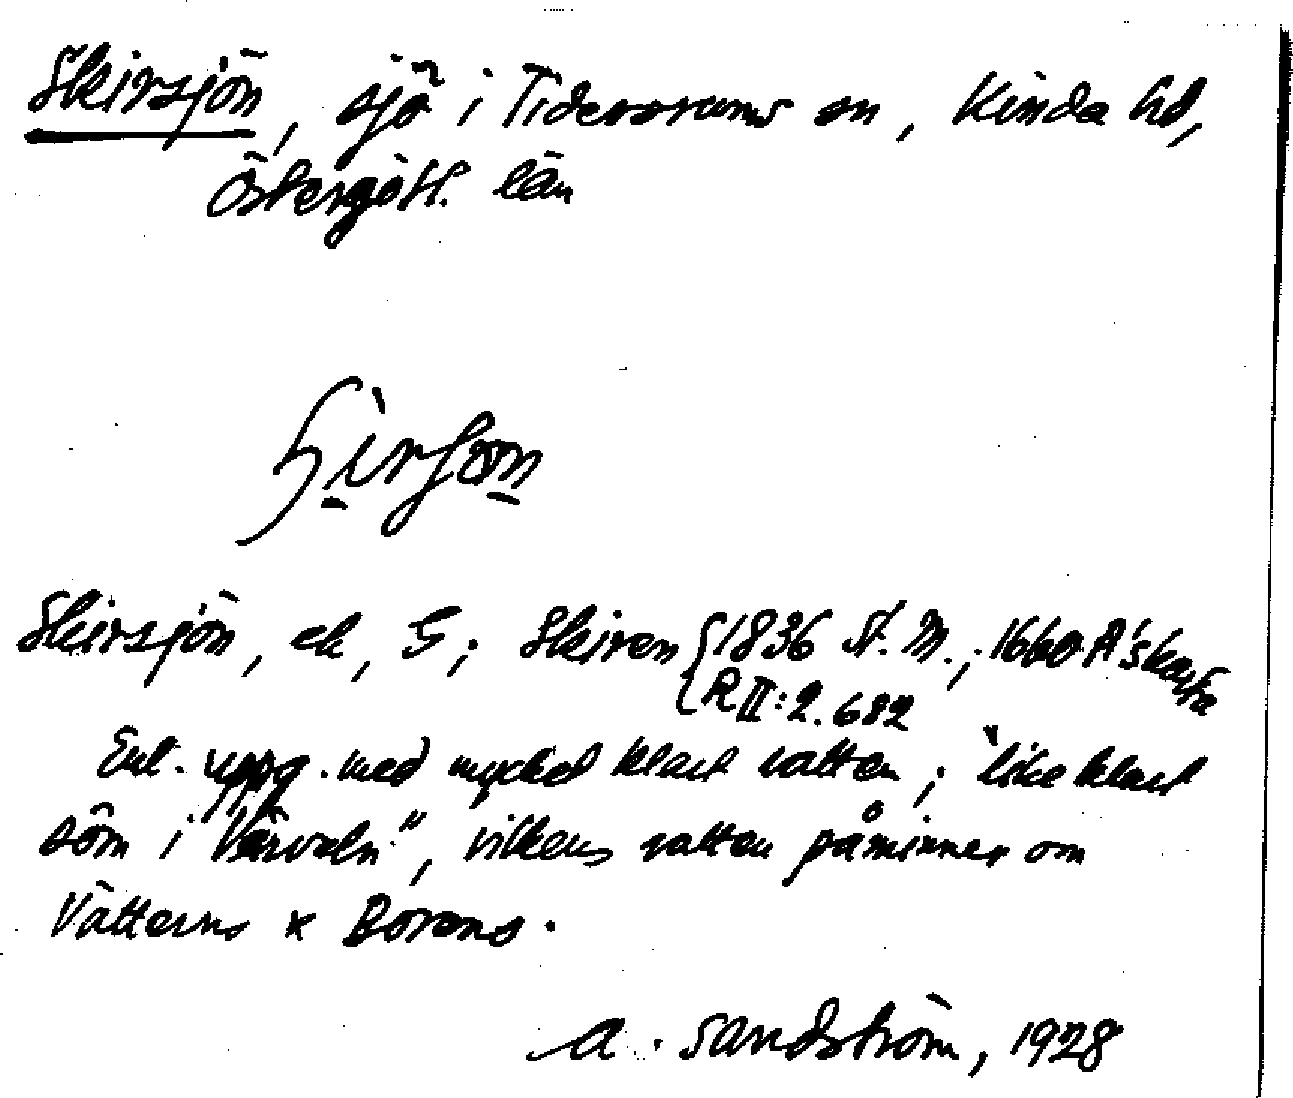 Skirsjön, sjö i Tidersrums sn, Kinda hd,
Östergötl. län
Skirsjön, ek, G; Skiren {1836 St. M.; 1660 Å's karta
R II: 2.682
Enl. uppg. med mycket klart vatten; "like klart
som i Värveln", vilkens vatten påminner om
Vätterns x Borens.
A. Sandström, 1928